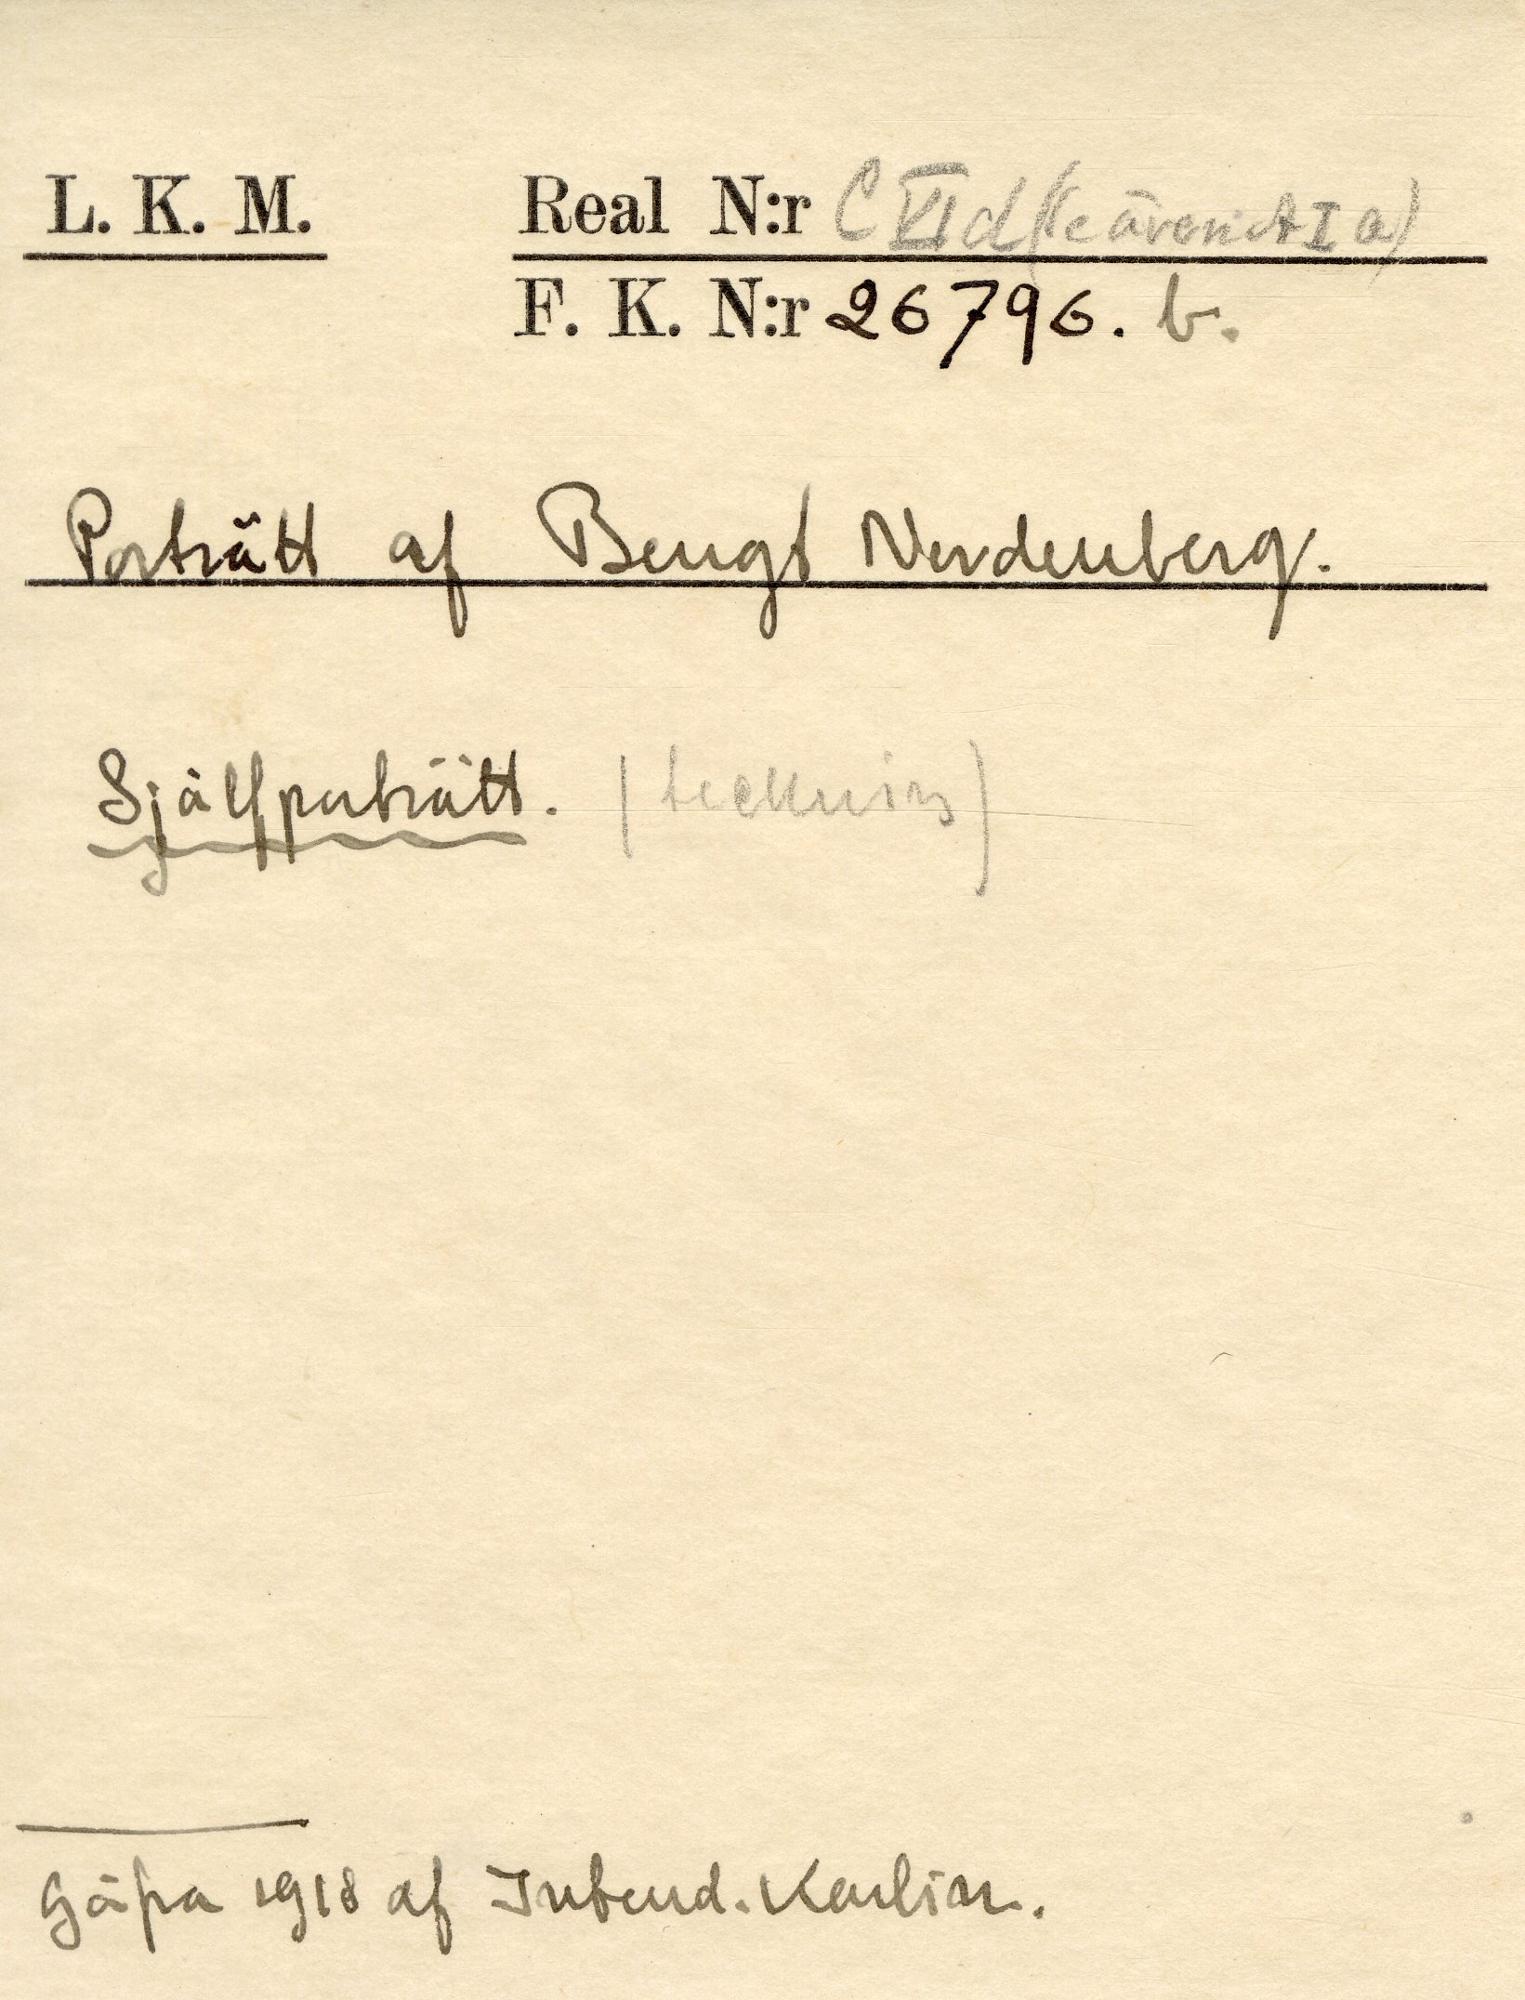 L. K. M. Real N:r C VI d (Leärendt I a)
F. K. N:r 26796. b.
Porträtt af Bengt Nordenberg.
Självporträtt. (teckning)
Gåfva 1918 af Intend. Karlin.